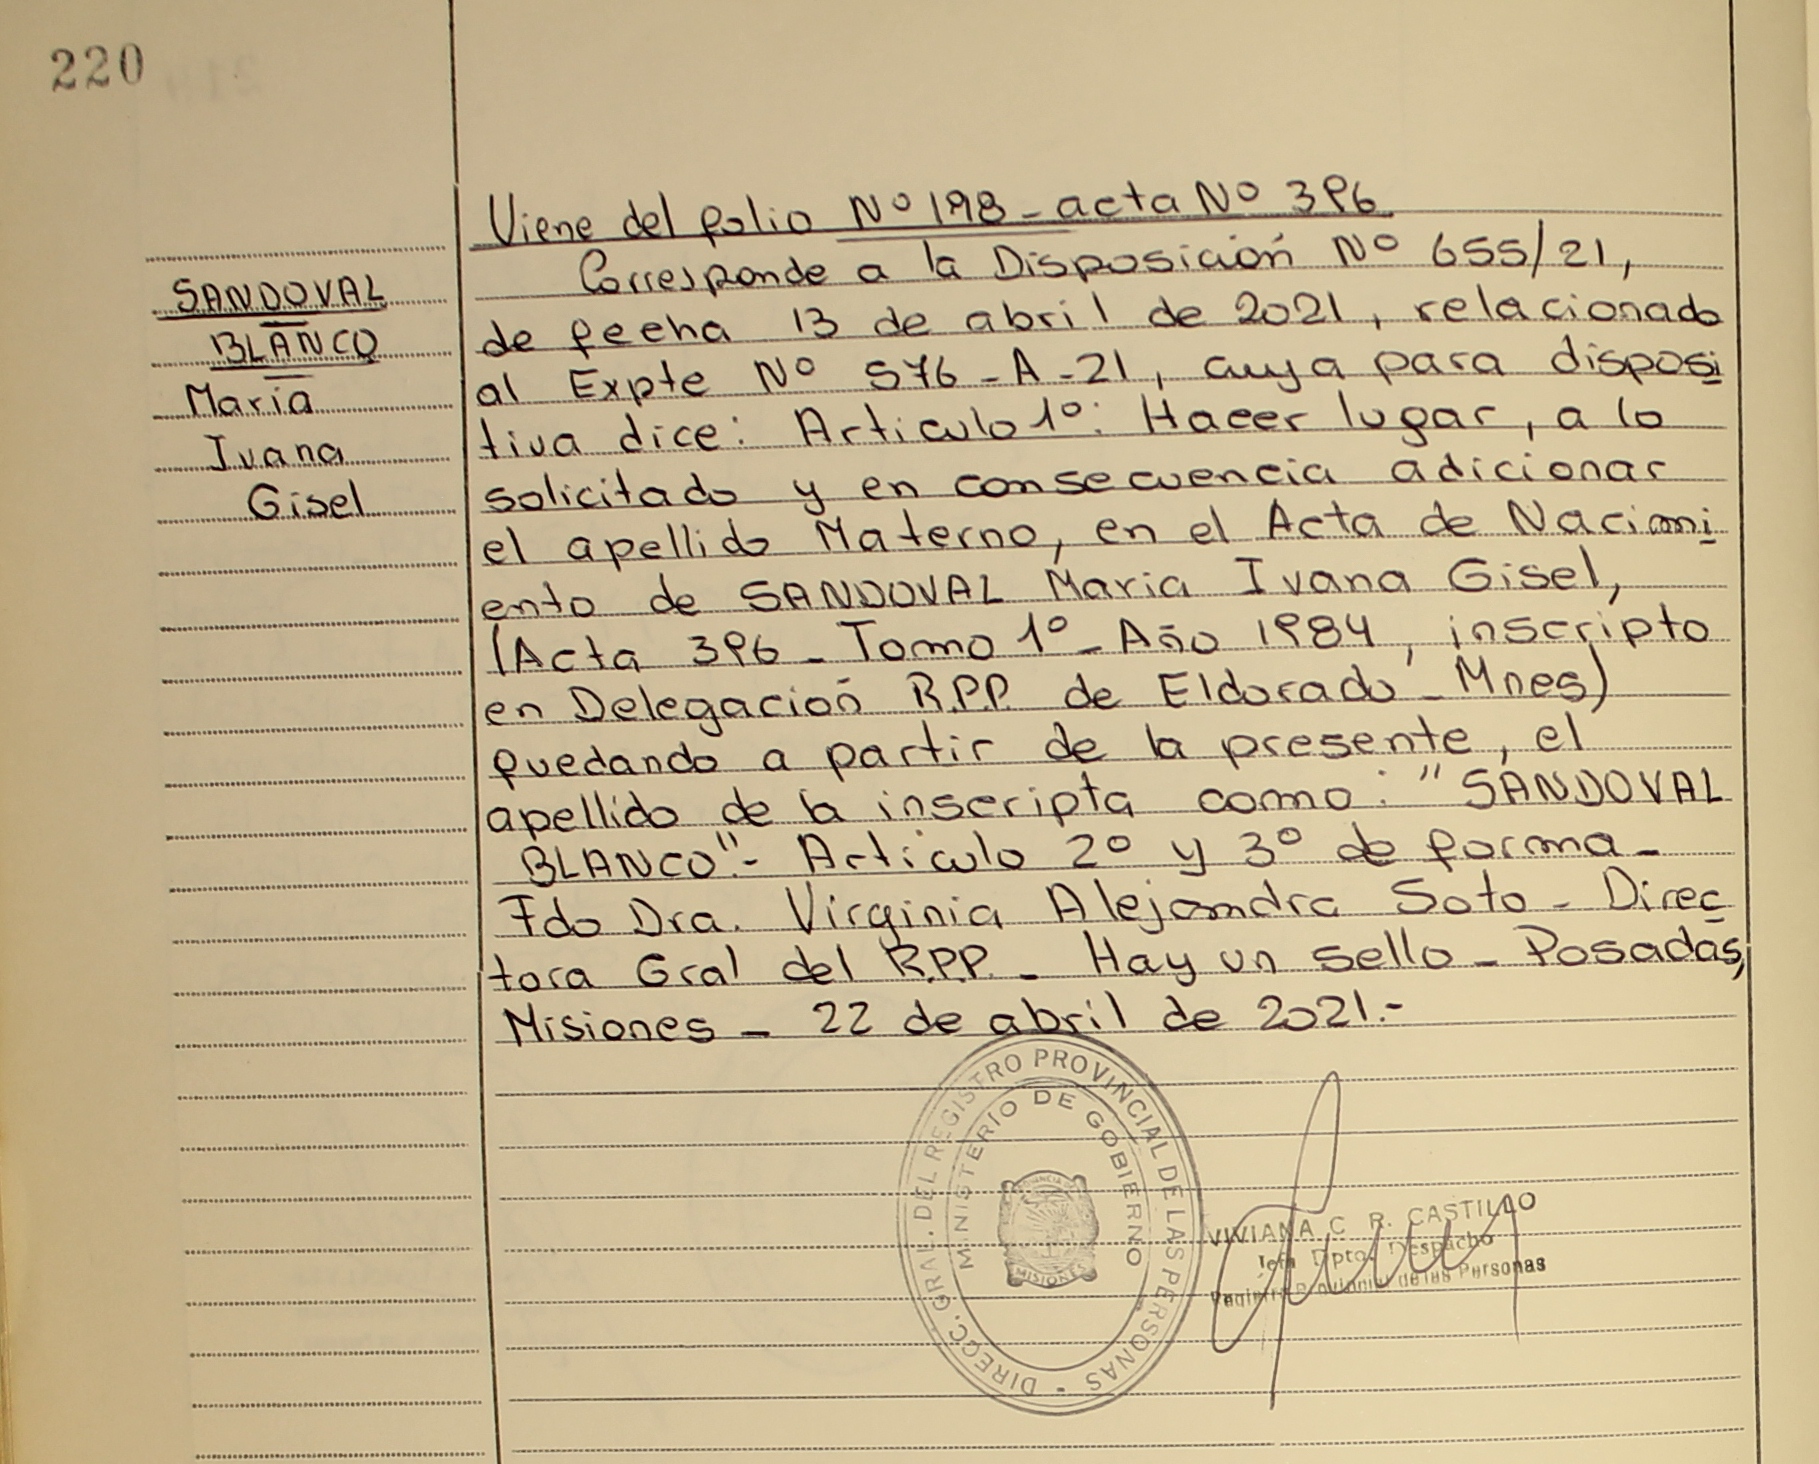 220
Viene del folio Nº 198 - acta Nº 396
Corresponde a la Disposición Nº 655/21,
de fecha 13 de abril de 2021, relacionado
al Expte Nº 576-A-21, cuya para disposi
tiva dice: Articulo 1º: Hacer lugar, a lo
solicitado y en consecuencia adicionar
el apellido Materno, en el Acta de Nacimi
ento de SANDOVAL Maria Ivana Gisel,
(Acta 396 - Tomo 1º - Año 1984, inscripto
en Delegación R.P.P. de Eldorado - Mnes)
quedando a partir de la presente, el
apellido de la inscripta como: "SANDOVAL
BLANCO".- Articulo 2º y 3º de forma -
Fdo Dra. Virginia Alejandra Soto - Direc
tora Gral del R.P.P. - Hay un sello - Posadas,
Misiones - 22 de abril de 2021.-
SANDOVAL
BLANCO
Maria
Ivana
Gisel
DIRECC. GRAL. DEL REGISTRO PROVINCIAL DE LAS PERSONAS
MINISTERIO DE GOBIERNO
MISIONES
VIVIANA C. R. CASTILLO
Jefa Dpto. Despacho
Registro Provincial de las Personas